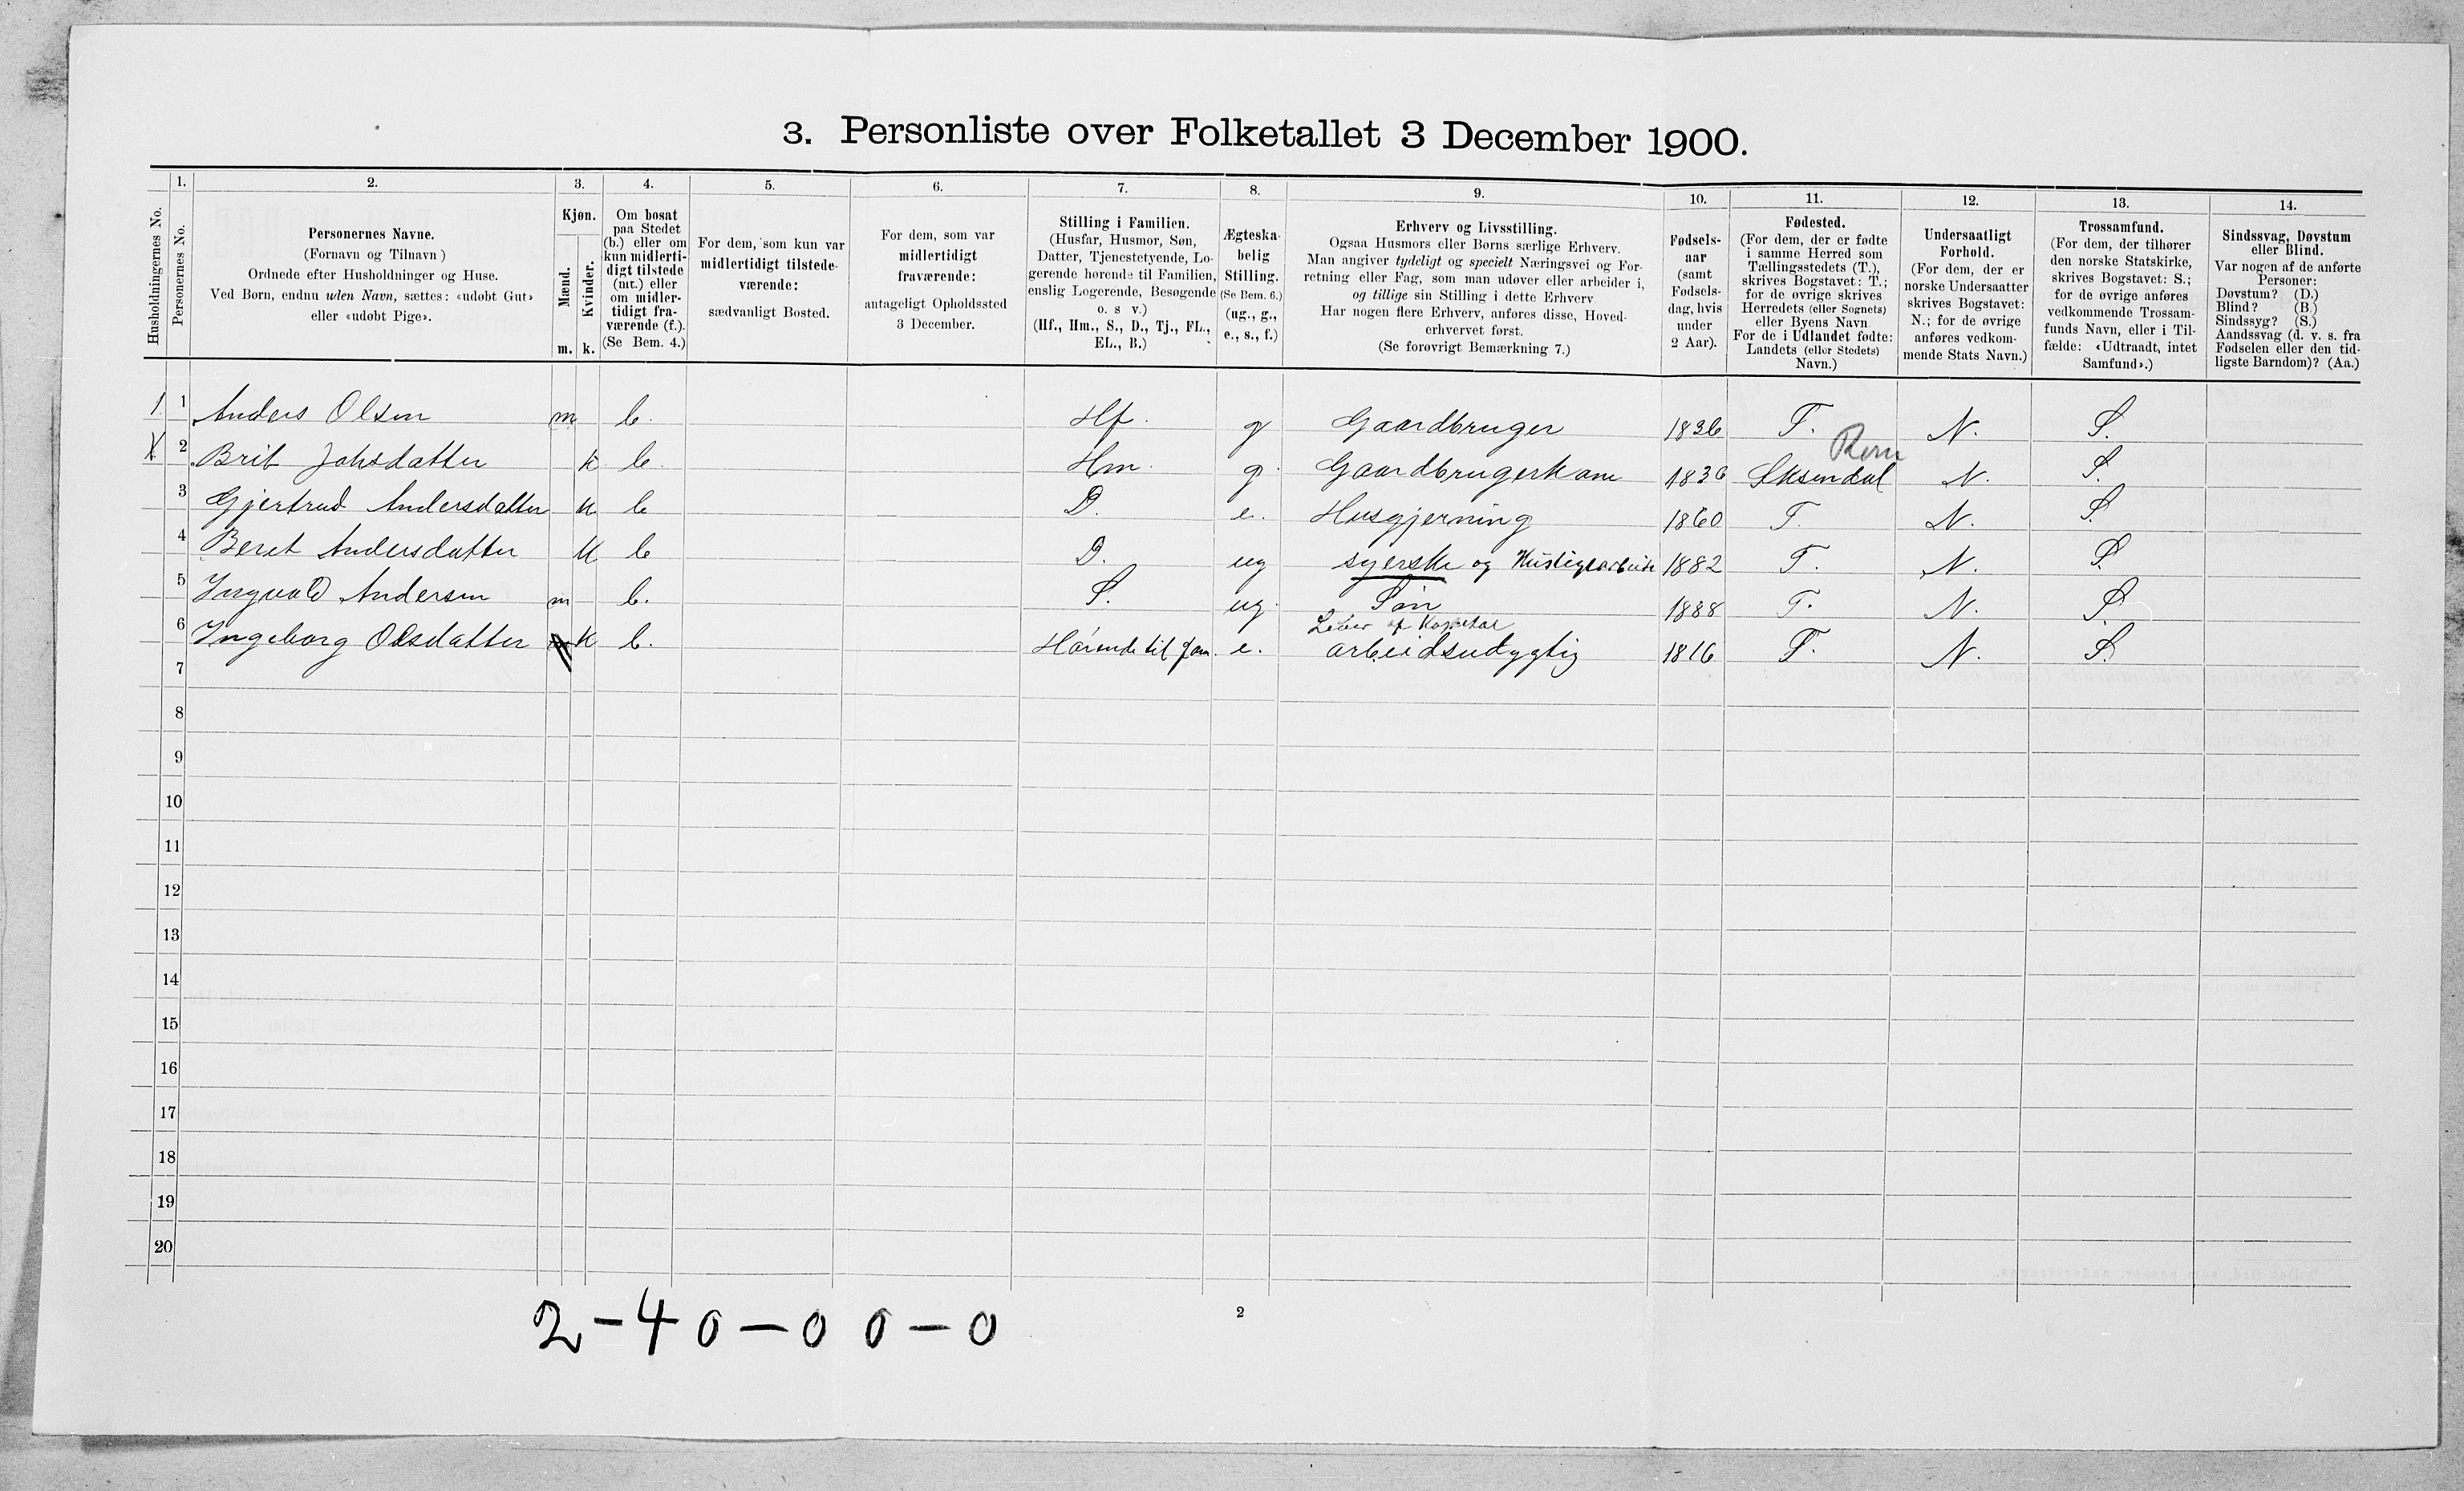 3. Personliste over Folketallet 3 December 1900.
1. 2. 3. 4. 5. 6. 7. 8. 9. 10. 11. 12. 13. 14.
Husholdningernes No.
Personernes No.
Personernes Navne.
(Fornavn og Tilnavn)
Ordnede efter Husholdninger og Huse.
Ved Børn, endnu uden Navn, sættes: «udøbt Gut»
eller «udøbt Pige».
Kjøn.
Mænd.
Kvinder.
m. k.
Om bosat
paa Stedet
(b.) eller om
kun midlerti-
digt tilstede
(mt.) eller
om midler-
tidigt fra-
værende (f.).
(Se Bem. 4.)
For dem, som kun var
midlertidigt tilstede-
værende:
sædvanligt Bosted.
For dem, som var
midlertidigt
fraværende:
antageligt Opholdssted
3 December.
Stilling i Familien.
(Husfar, Husmor, Søn,
Datter, Tjenestetyende, Lo-
gerende hørende til Familien,
enslig Logerende, Besøgende
o. s v.)
(Hf., Hm., S., D., Tj., FL.,
EL., B.)
Ægteska-
belig
Stilling.
(Se Bem. 6.)
(ug., g.,
e., s., f.)
Erhverv og Livsstilling.
Ogsaa Husmors eller Børns særlige Erhverv.
Man angiver tydeligt og specielt Næringsvei og For-
retning eller Fag, som man udøver eller arbeider i,
og tillige sin Stilling i dette Erhverv
Har nogen flere Erhverv, anføres disse, Hoved-
erhvervet først.
(Se forøvrigt Bemærkning 7.)
Fødsels-
aar
(samt
Fødsels-
dag, hvis
under
2 Aar).
Fødested.
(For dem, der er fødte
i samme Herred som
Tællingsstedets (T.),
skrives Bogstavet: T.;
for de øvrige skrives
Herredets (eller Sognets)
eller Byens Navn
For de i Udlandet fødte:
Landets (eller Stedets)
Navn.)
Undersaatligt
Forhold.
(For dem, der er
norske Undersaatter
skrives Bogstavet:
N.; for de øvrige
anføres vedkom-
mende Stats Navn.)
Trossamfund.
(For dem, der tilhører
den norske Statskirke,
skrives Bogstavet: S.;
for de øvrige anføres
vedkommende Trossam-
funds Navn, eller i Til-
fælde: «Udtraadt, intet
Samfund».)
Sindssvag, Døvstum
eller Blind.
Var nogen af de anførte
Personer:
Døvstum? (D.)
Blind? (B.)
Sindssyg? (S.)
Aandssvag (d. v. s. fra
Fødselen eller den tid-
ligste Barndom)? (Aa.)
1 1 Anders Olsen m b. Hf. g Gaardbruger 1836 T. N. S.
2 Brit Johsdatter k b. Hm. g. Gaardbrugerkone 1836 Øksendal N. S.
3 Gjertrud Andersdatter k b D. e. Husgjerning 1860 T. N. S.
4 Beret Andersdatter k b D. ug syerske og 1882 T. N. S.
5 Ingvald Andersen m b. S. ug. Søn 1888 T. N. S.
Lever af Kapital
6 Ingeborg Olsdatter k b. Hørende til fam. e. arbeidsudygtig 1816 T. N. S.
7
8
9
10
11
12
13
14
15
16
17
18
19
20
2-4 0-0 0-0
2